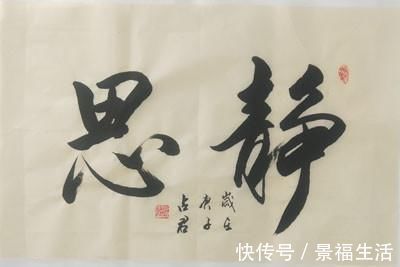 静思
岁在
庚子
占君
快传号／景福生活